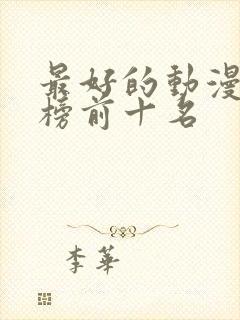 最好的動漫
榜前十名
李華